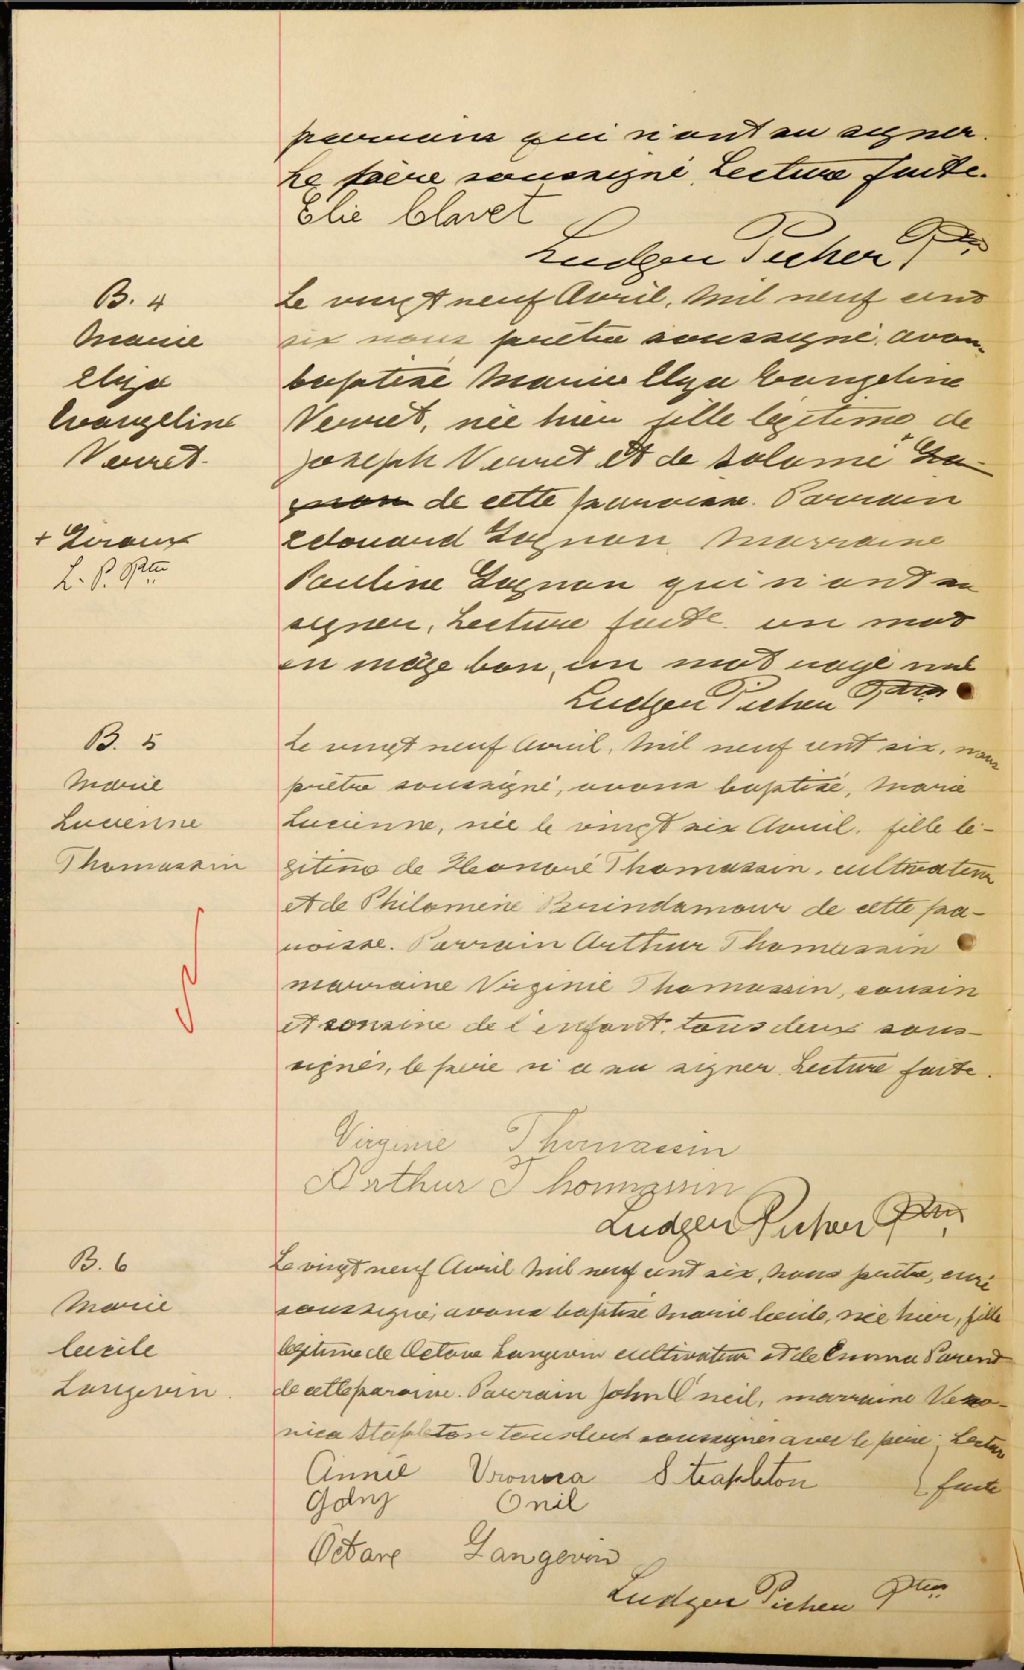 parrain qui n'ont su signer.
Le père soussigné. Lecture faite.
Elie Clavet
Ludger Picher Ptre
B. 4
Marie
Elija
Evangeline
Verret.
+ Giroux
L. P. Ptre
Le vingt neuf Avril, Mil neuf cent
six nous prêtre soussigné, avons
baptisé Marie Elija Evangeline
Verret, née hier fille légitime de
Joseph Verret et de Salomé +
de cette paroisse. Parrain
Edouard Gagnon, Marraine
Pauline Gagnon qui n'ont su
signer, Lecture faite. un mot
en marge bon, un mot rayé nul
Ludger Picher Ptre
B. 5
Marie
Lucienne
Thomassin
Le vingt neuf Avril, Mil neuf cent six, nous
prêtre soussigné, avons baptisé, Marie
Lucienne, née le vingt six Avril, fille lé-
gitime de Honoré Thomassin, cultivateur
et de Philomène Brindamour de cette pa-
roisse. Parrain Arthur Thomassin
marraine Virginie Thomassin, cousin
et cousine de l'enfant, tous deux sous-
signés, le père n'a su signer. Lecture faite.
Virginie Thomassin
Arthur Thomassin
Ludger Picher Ptre
B. 6
Marie
Cecile
Langevin.
Le vingt neuf Avril Mil neuf cent six, nous prêtre, curé
soussigné, avons baptisé Marie Cecile, née hier, fille
légitime de Octave Langevin cultivateur et de Emma Parent
de cette paroisse. Parrain John O'neil, marraine Vero-
nica Stapleton tous deux soussignés avec le père. Lecture
faite
Annie Vronica Stapleton
Onil
Octave Langevin
Ludger Picher Ptre